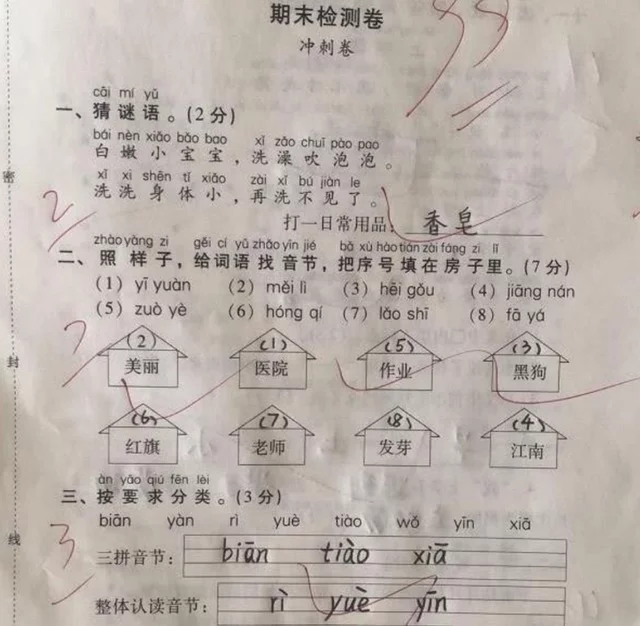 期末检测卷
冲刺卷
cāi mí yǔ
一、猜谜语。(2分)
bái nèn xiǎo bǎo bao xǐ zǎo chuī pào pao
白嫩小宝宝，洗澡吹泡泡。
xǐ xi shēn tǐ xiǎo zài xǐ bú jiàn le
洗洗身体小，再洗不见了。
2
打一日常用品: 香皂
zhào yàng zi gěi cí yǔ zhǎo yīn jié bǎ xù hào tián zài fáng zi lǐ
二、照样子，给词语找音节，把序号填在房子里。(7分)
(1) yī yuàn (2) měi lì (3) hēi gǒu (4) jiāng nán
(5) zuò yè (6) hóng qí (7) lǎo shī (8) fā yá
7
(2) (1) (5) (3)
美丽 医院 作业 黑狗
(6) (7) (8) (4)
红旗 老师 发芽 江南
àn yāo qiú fēn lèi
三、按要求分类。(3分)
biān yàn rì yuè tiào wǒ yīn xiā
3
三拼音节: biān tiào xiā
整体认读音节: rì yuè yīn
密
封
线